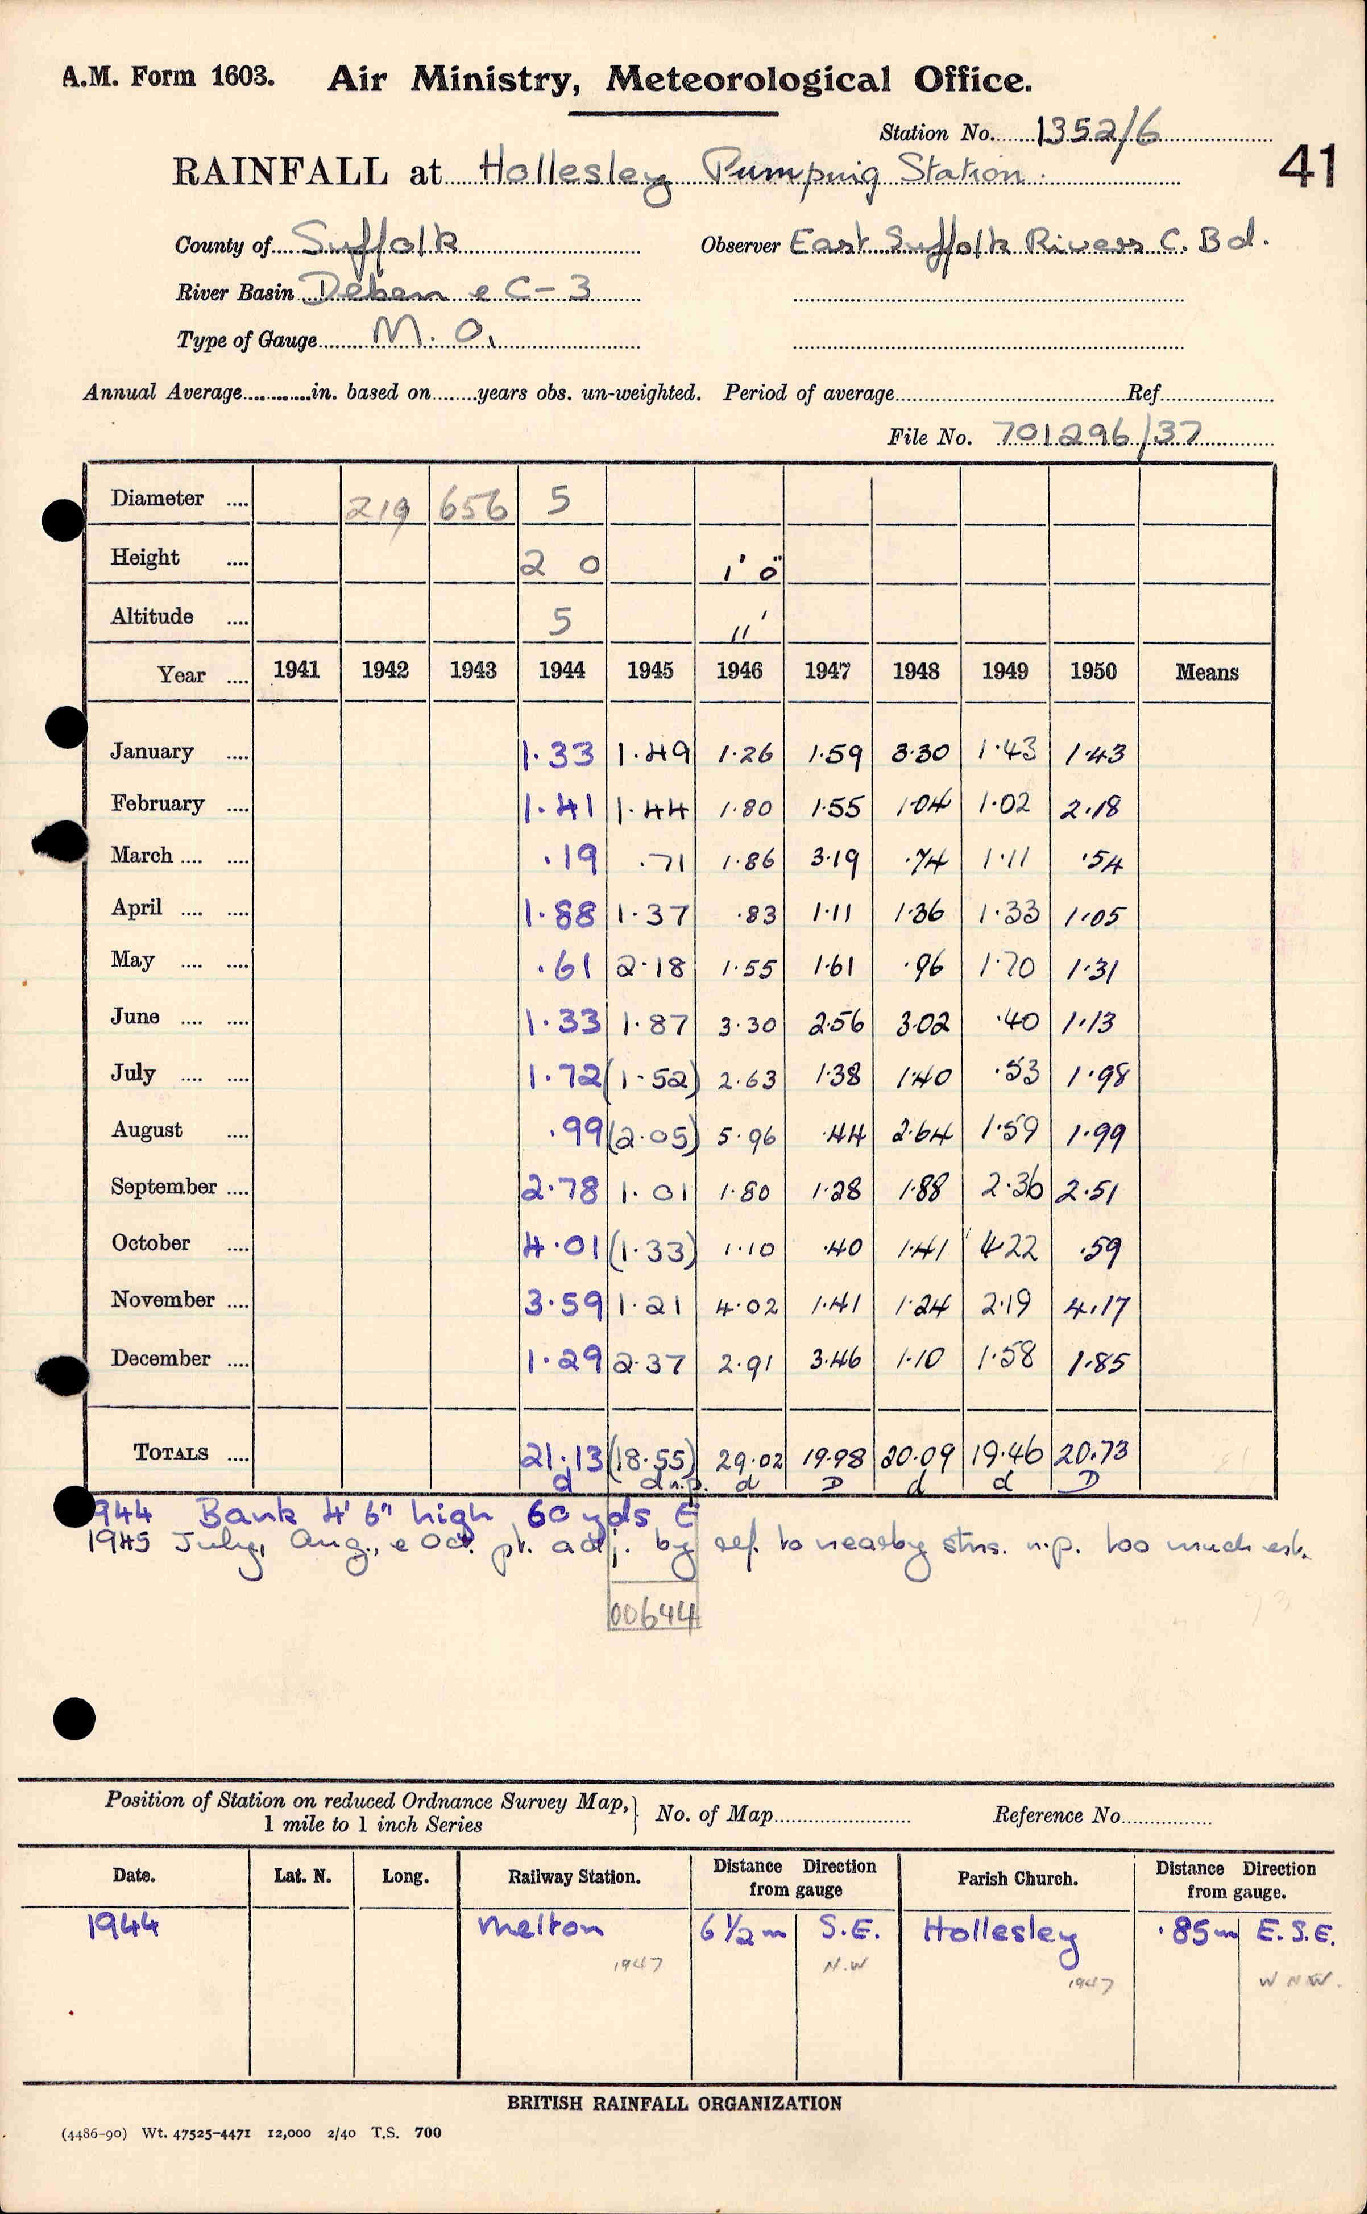 A.M. Form 1603. Air Ministry, Meteorological Office.
Station No. 1352/6
41
RAINFALL at Hollesley Pumping Station.
County of Suffolk Observer East Suffolk Rivers C. Bd.
River Basin Deben e C-3
Type of Gauge M. O.
Annual Average............in. based on........years obs. un-weighted. Period of average.................Ref.................
File No. 701296/37
Diameter .... 219 656 5
Height .... 2 0 1' 0"
Altitude .... 5 11'
Year .... 1941 1942 1943 1944 1945 1946 1947 1948 1949 1950 Means
January .... 1.33 1.49 1.26 1.59 3.30 1.43 1.43
February .... 1.41 1.44 1.80 1.55 1.04 1.02 2.18
March .... .... .19 .71 1.86 3.19 .74 1.11 .54
April .... .... 1.88 1.37 .83 1.11 1.36 1.33 1.05
May .... .... .61 2.18 1.55 1.61 .96 1.70 1.31
June .... .... 1.33 1.87 3.30 2.56 3.02 .40 1.13
July .... .... 1.72 (1.52) 2.63 1.38 1.40 .53 1.98
August .... .99 (2.05) 5.96 .44 2.64 1.59 1.99
September .... 2.78 1.01 1.80 1.28 1.88 2.36 2.51
October .... 4.01 (1.33) 1.10 .40 1.41 4.22 .59
November .... 3.59 1.21 4.02 1.41 1.24 2.19 4.17
December .... 1.29 2.37 2.91 3.46 1.10 1.58 1.85
TOTALS .... 21.13 (18.55) 29.02 19.98 20.09 19.46 20.73
d d n.p. d D d d D
1944 Bank 4' 6" high 60 yds E
1945 July, Aug., e Oct. pt. adj. by ref. to nearby stns. n.p. too much est.
00644
Position of Station on reduced Ordnance Survey Map, } No. of Map........................ Reference No................
1 mile to 1 inch Series
Date. Lat. N. Long. Railway Station. Distance Direction from gauge Parish Church. Distance Direction from gauge.
1944 Melton 6½m S.E. Hollesley .85m E.S.E.
1947 N.W 1947 W N W.
BRITISH RAINFALL ORGANIZATION
(4486-90) Wt. 47525-4471 12,000 2/40 T.S. 700